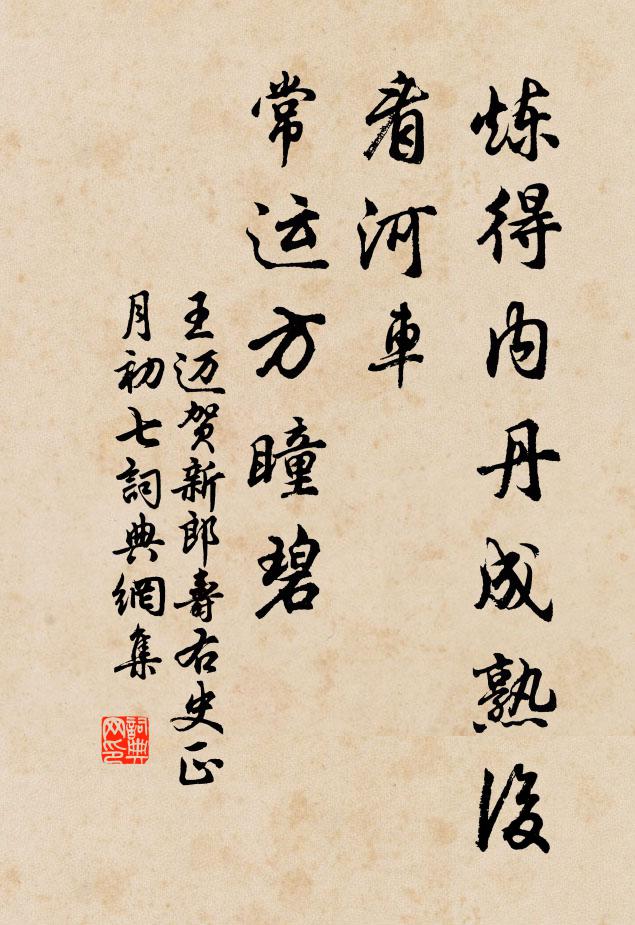 炼得内丹成熟後
看河車
常运方瞳碧
王迈贺新郎壽右史正
月初七詞典網集
詞典网印